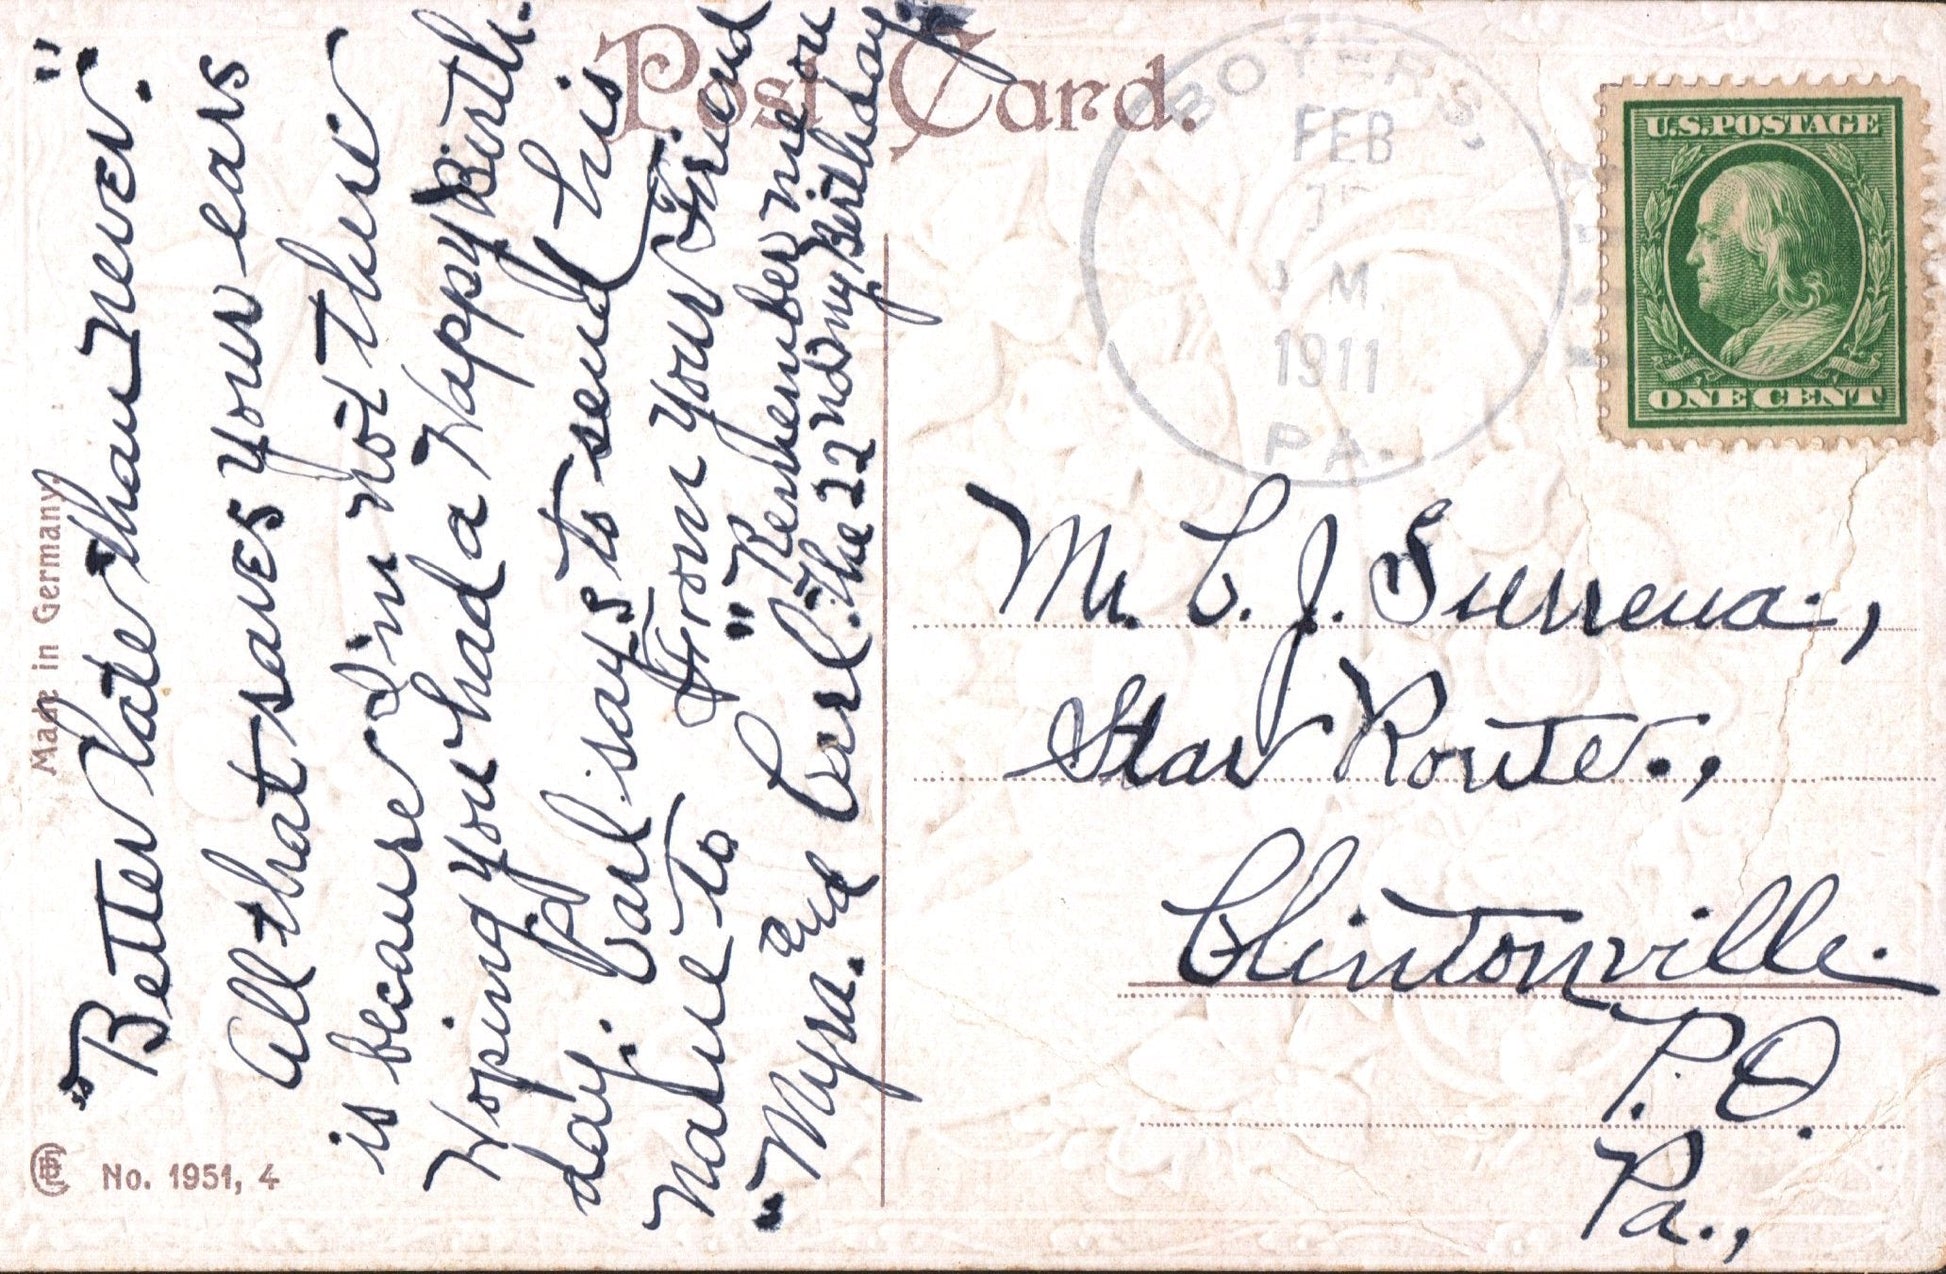 Post Card.
"Better late than never."
All that saves your ears
is because I'm not there
Hoping you had a Happy Birth-
day. Pd Carl says to send his
name to. From Your Friend
"Myra. And Carl. "Remember me on
the 22nd my Birthday."
Made in Germany.
No. 1951, 4
BOYERS,
FEB
M
1911
PA.
U.S. POSTAGE
ONE CENT
Mr. C. J. Surrena.,
Star Route.,
Clintonville.
P.O.
Pa.,